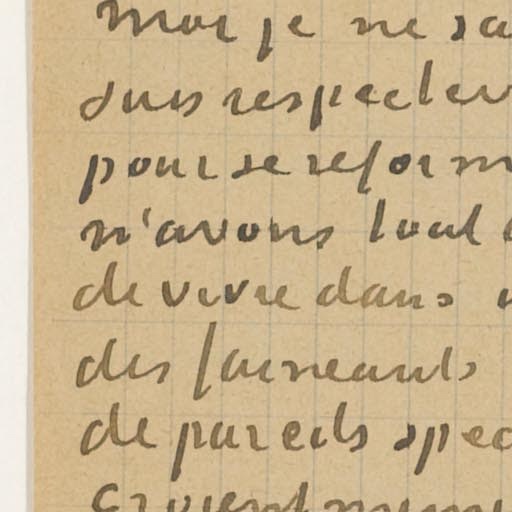 moi je ne sa
suis respecter
pour se reform
n'avons tout
de vivre dans
des faineants
de pareils spec